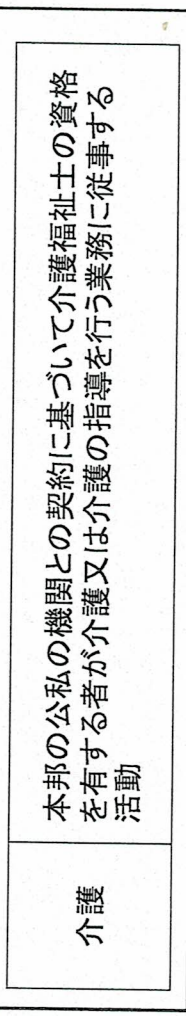 介護
本邦の公私の機関との契約に基づいて介護福祉士の資格
を有する者が介護又は介護の指導を行う業務に従事する
活動